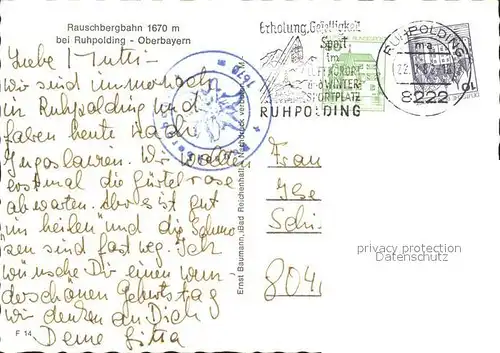 Rauschbergbahn 1670 m
bei Ruhpolding - Oberbayern
Liebe Mutti -
wir sind immer noch
in Ruhpolding und
fahren heute nach
Jugoslawien. Wir wollten
erstmal die Gürtelrose
abwarten. Aber es ist gut
im heilen" und die Schmer-
zen sind fast weg. Ich
wünsche Dir einen wun-
derschönen Geburtstag
wir denken an Dich
Deine
F 14
Ernst Baumann, Bad Reichenhall, Nachdruck verboten
1670 m
Erholung, Geselligkeit
Sport
im
LUFTKURORT
u.
WINTER-
SPORTPLATZ
RUHPOLDING
RUHPOLDING
22.
8222
Frau
Schi
804
privacy protection
Datenschutz